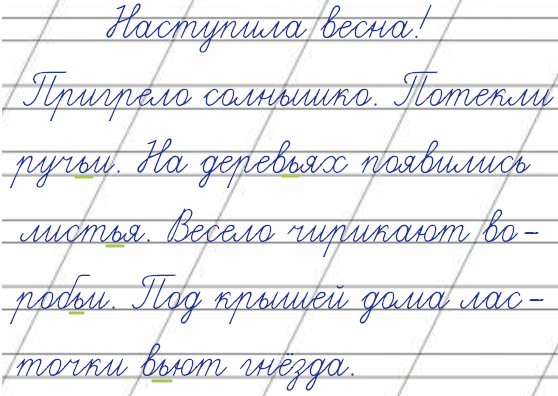 Наступила весна!
Пригрело солнышко. Потекли
ручьи. На деревьях появились
листья. Весело чирикают во-
робьи. Под крышей дома лас-
точки вьют гнёзда.